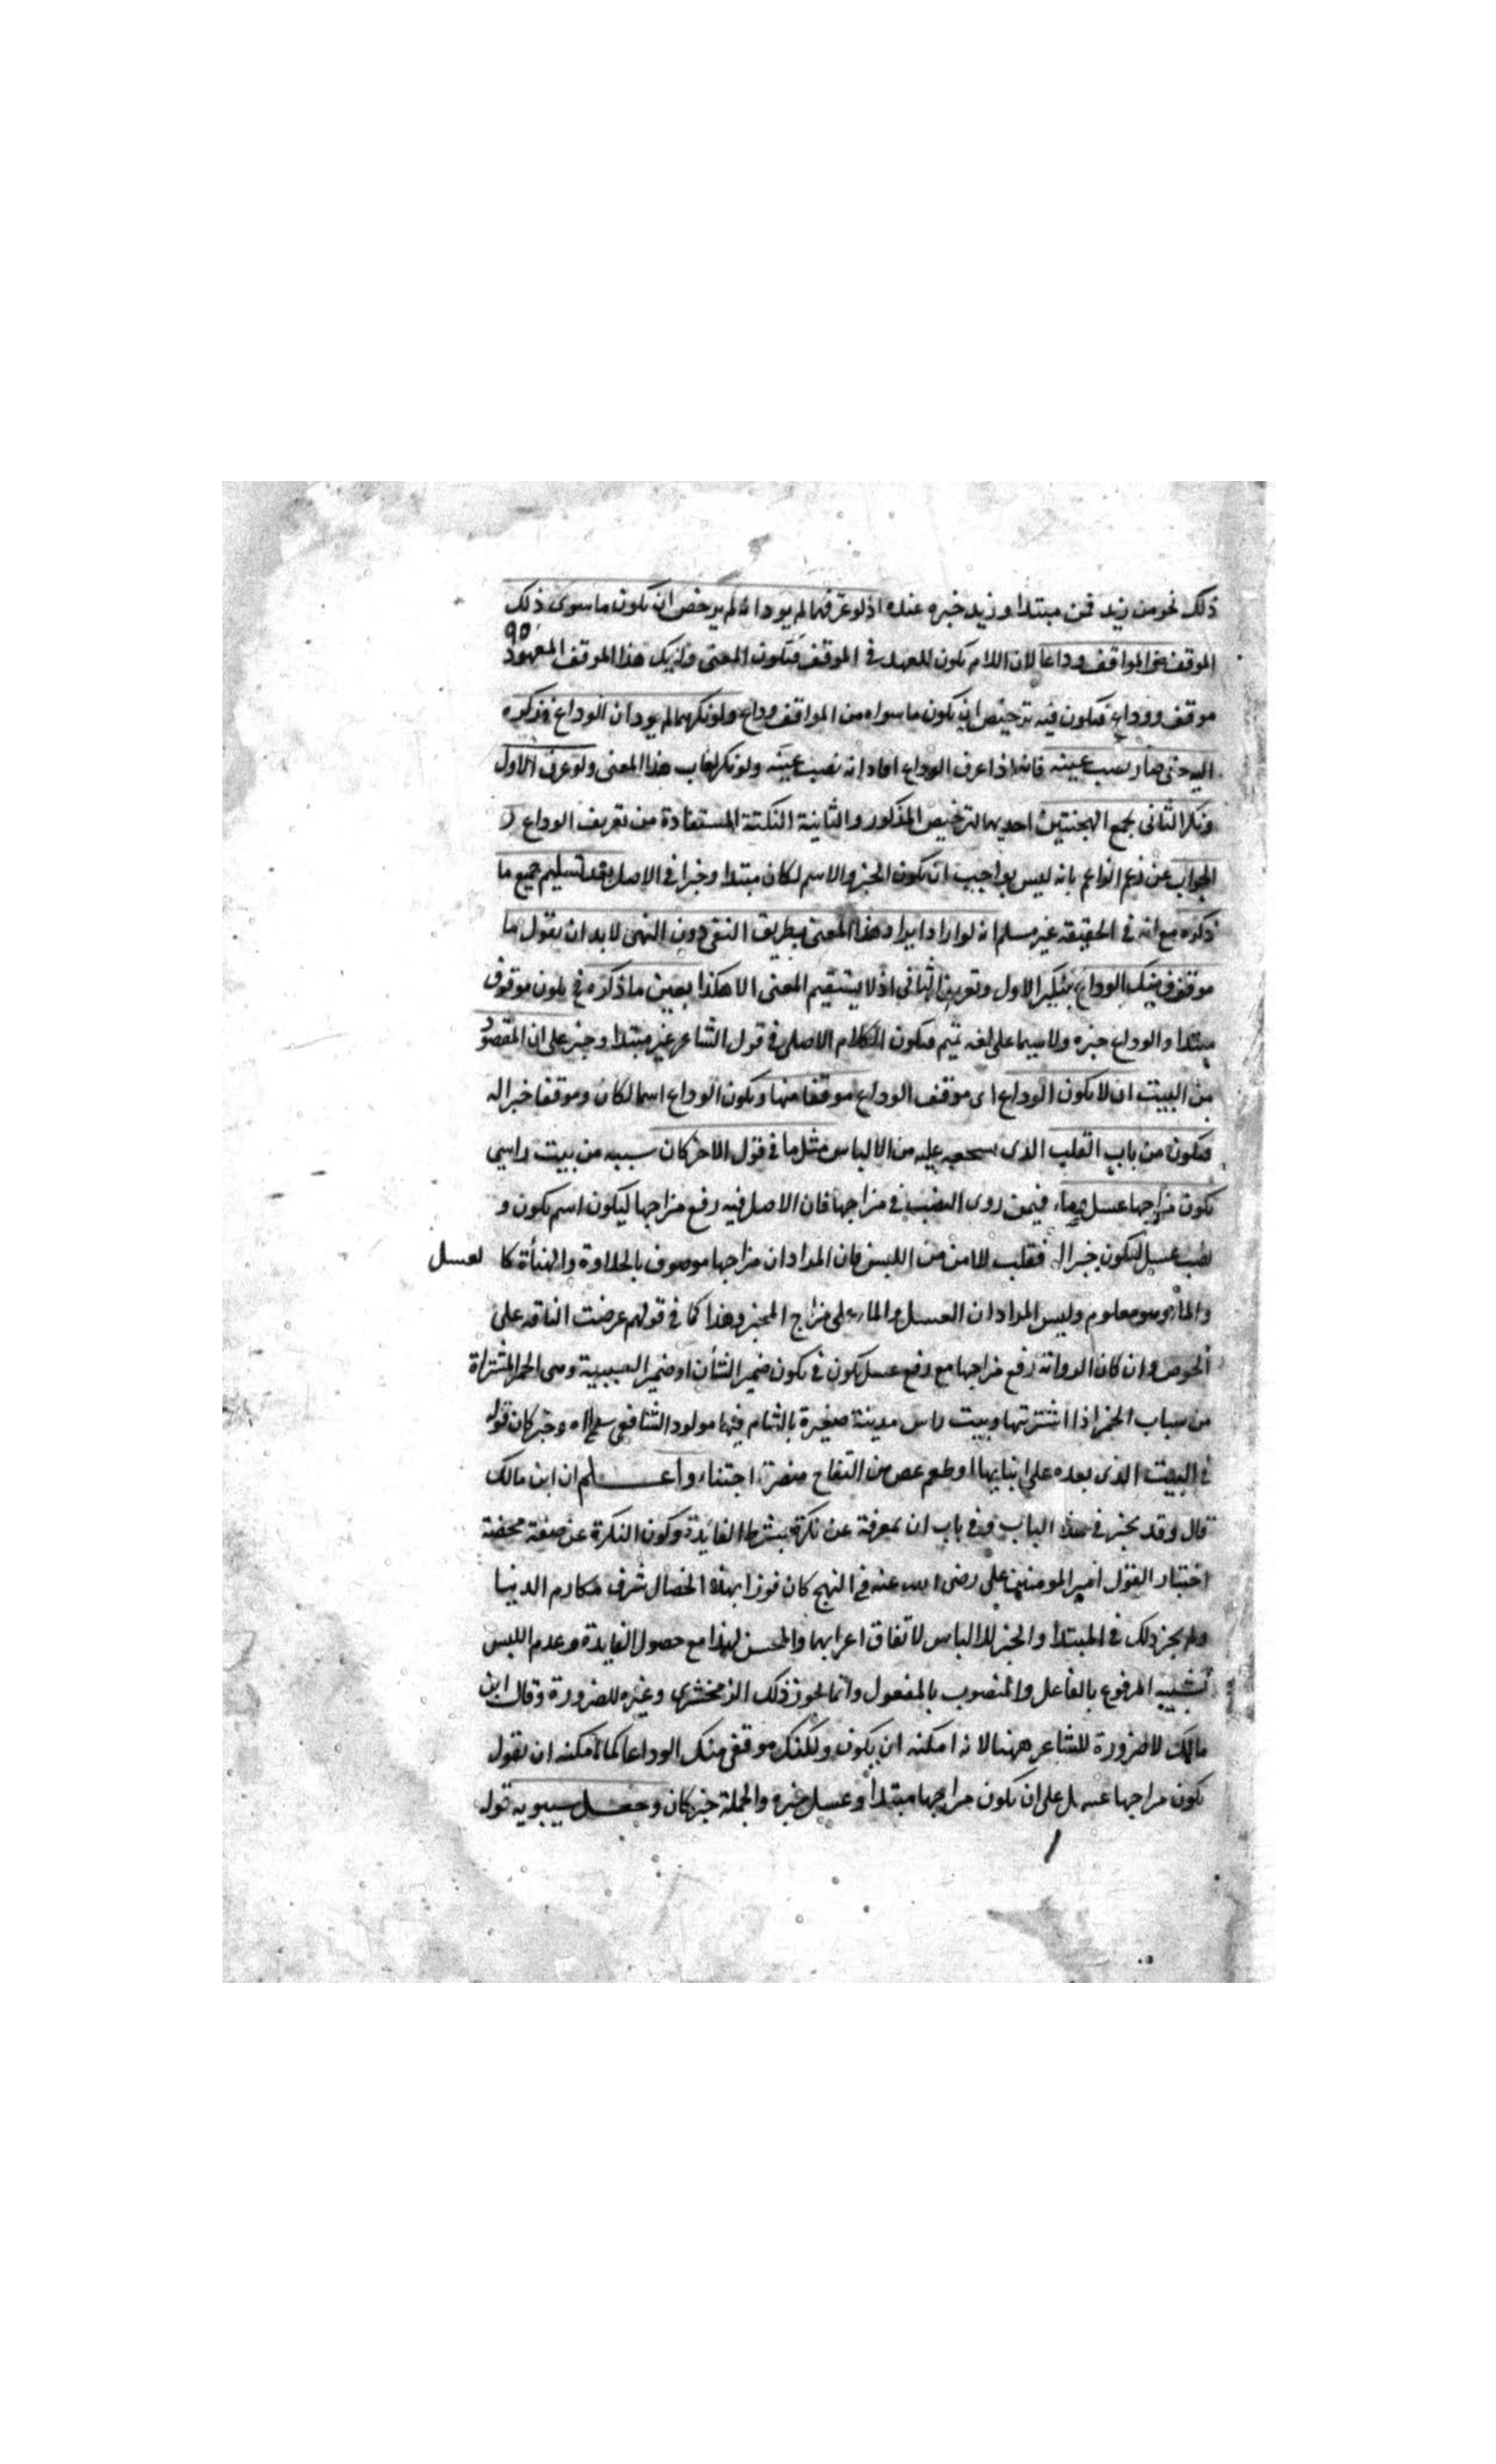 ذلك نحو من زيد فمن مبتدا وزيد خبره عنده اذ لو عرفهما لم يود انه لم يرخص ان يكون ما سوى ذلك
٩٥
الموقف من المواقف وداعا لان اللام يكون للعهد في الموقف فتكون المعنى ولا يك هذا الموقف المعهود
موقف ووداع فيكون فيه ترخيص ان يكون ما سواه من المواقف وداع ولو نكرهما لم يود ان الوداع
اليه حتى صار نصب عينه فانه اذا عرف الوداع افاد انه نصب عينه ولو نكر لغاب هذا المعنى ولو عرف الاول
ونكر الثاني لجمع الهجنتين احديهما لترخيص المذكور والثانية النكتة المستفادة من تعريف الوداع
الجواب عن زعم الزاعم بانه ليس بواجب ان يكون الخبر والاسم لكان مبتدا وخبرا في الاصل بعد تسليم جميع ما
ذكره مع انه في الحقيقة غير مسلم انه لو اراد ايراد هذا المعنى بطريق النفي دون النهي لابد ان يقول ما
موقف منك الوداع بتنكير الاول وتعريف الثاني اذ لا يستقيم المعنى الا هكذا بعين ما ذكره في يكون موقوف
مبتدا والوداع خبره ولا سيما على لغه تميم فيكون الكلام الاصلي في قول الشاعر غير مبتدا وخبر على ان المقصود
من البيت ان لا يكون الوداع اى موقف الوداع موقفا منها ويكون الوداع اسما لكان وموقفا خبرا له
فتكون من باب القلب الذى عليه من الالباس مثل ما في قول الاخر كان سبيه من بيت راسى
يكون مزاجها عسل وماء فيمن روى النصب في مزاجها فان الاصل فيه رفع مزاجها ليكون اسم يكون و
نصب عسل ليكون خبرا له فقلب للامن من اللبس فان المراد ان مزاجها موصوف بالحلاوة والهناة كا لعسل
والماء وهو معلوم وليس المراد ان العسل والماء على مزاج الخمر وهذا كما في قولهم عرضت الناقه على
الحوض وان كان الرواته رفع مزاجها مع رفع عسل يكون في يكون ضمير الشأن او ضمير السبية وهى الخمر المشتراة
من سباب الخمر اذا اشتريتها وبيت راس مدينة صغيرة بالشام فيها مولود الشافعى وخبر كان قوله
في البيت الذى بعده على انيابها او طعم غض من التفاح هصره اجتناء واعلم ان ابن مالك
قال وقد يخبر في هذا الباب وفي باب ان بمعرفة عن نكرة بشرط الفايدة وكون النكرة عن صفة محضة
اختيار القول امير المومنين على رضى الله عنه في النهج كان فوزا بهذه الخصال شرف مكارم الدنيا
ولم يجز ذلك في المبتدا والخبر للالباس لاتفاق اعرابهما والمحسن لهذا مع حصول الفايدة وعدم اللبس
تشبيه المرفوع بالفاعل والمنصوب بالمفعول وانما يجوز ذلك الزمخشرى وغيره للضرورة وقال ابن
مالك لا ضرورة للشاعر ههنا لانه امكنه ان يكون ولكنك موقفى منك الوداعا كما امكنه ان يقول
يكون مزاجها عسل على ان يكون مزاجها مبتدا وعسل خبره والجملة خبر كان وجعل سيبويه قوله